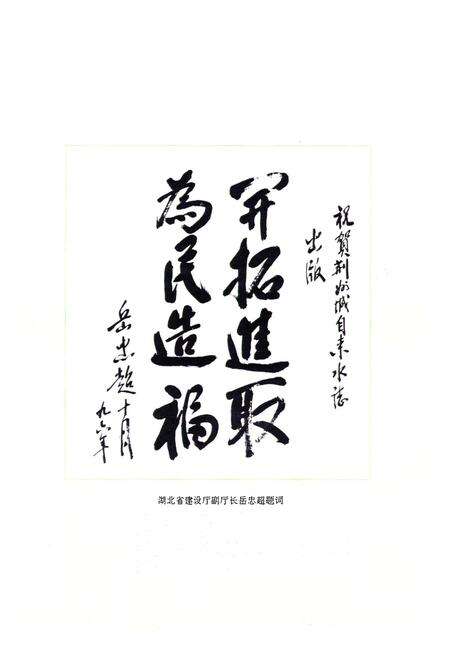 祝賀荆州城自来水誌
出版
开拓進取
為民造福
岳忠超十月
九六年
湖北省建设厅副厅长岳忠超题词